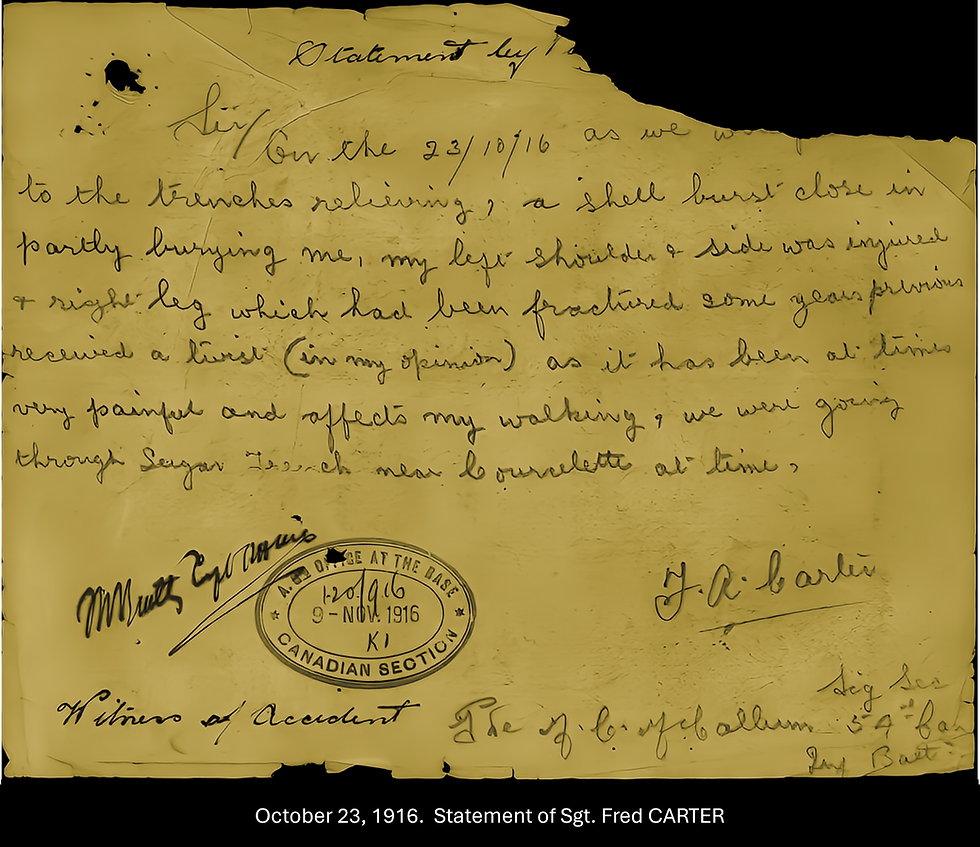 Statement by
Sir/
On the 23/10/16 as we
to the trenches relieving, a shell burst close in
partly burying me, my left shoulder & side was injured
& right leg which had been fractured some years previous
received a twist (in my opinion) as it has been at times
very painful and affects my walking, we were going
through Sugar Trench near Courcelette at time,
Capt
A.G's OFFICE AT THE BASE
9-NOV. 1916
K1
CANADIAN SECTION
F. A. Carter
Sig Sec
Witness of Accident
Pte McCallum 54th
Batt
October 23, 1916. Statement of Sgt. Fred CARTER